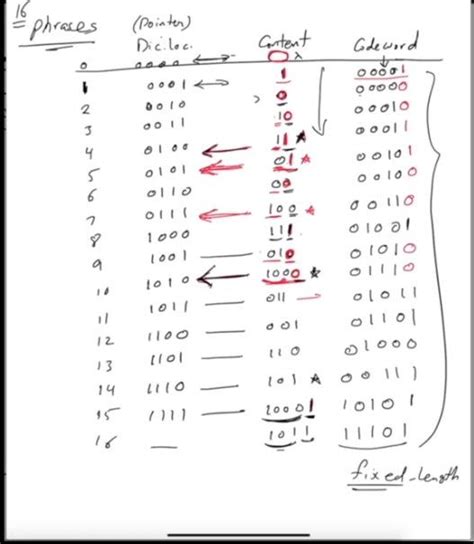 16
phrases (Pointer) Dic.loc. Content Codeword
0 0000 λ
1 0001 1 00001
2 0010 0 00000
3 0011 10 00010
4 0100 11 00011
5 0101 01 00101
6 0110 00 00100
7 0111 100 00110
8 1000 111 01001
9 1001 010 01010
10 1010 1000 01110
11 1011 011 01011
12 1100 001 01101
13 1101 110 01000
14 1110 101 00111
15 1111 10001 10101
16 — 1011 11101
fixed-length